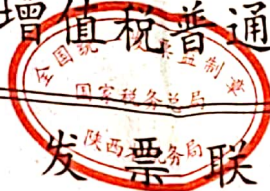 增值税普通
全国统一发票监制章
国家税务总局
陕西 务局
发票联